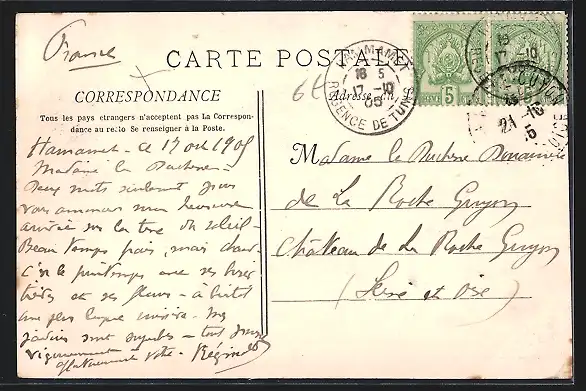 France
CARTE POSTALE
CORRESPONDANCE
Tous les pays etrangers n'acceptent pas La Correspon-
dance au recto Se renseigner à la Poste.
HAMMAMET
18 5
17 -10
05
REGENCE DE TUNIS
64
Adresse
5
5
17 -10
21 -10
Hammamet - ce 17 oct 1905
Madame la Duchesse -
Deux mots seulement pour
vous annoncer mon heureuse
arrivée sur la terre du soleil -
Beau temps frais, mais chaud -
C'est le printemps avec ses
et ses fleurs - à bientôt
une plus longue
jardins sont superbes - tout
votre - Réginald
Madame la Duchesse Douairière
de La Roche Guyon
Château de La Roche Guyon
(Seine et Oise)